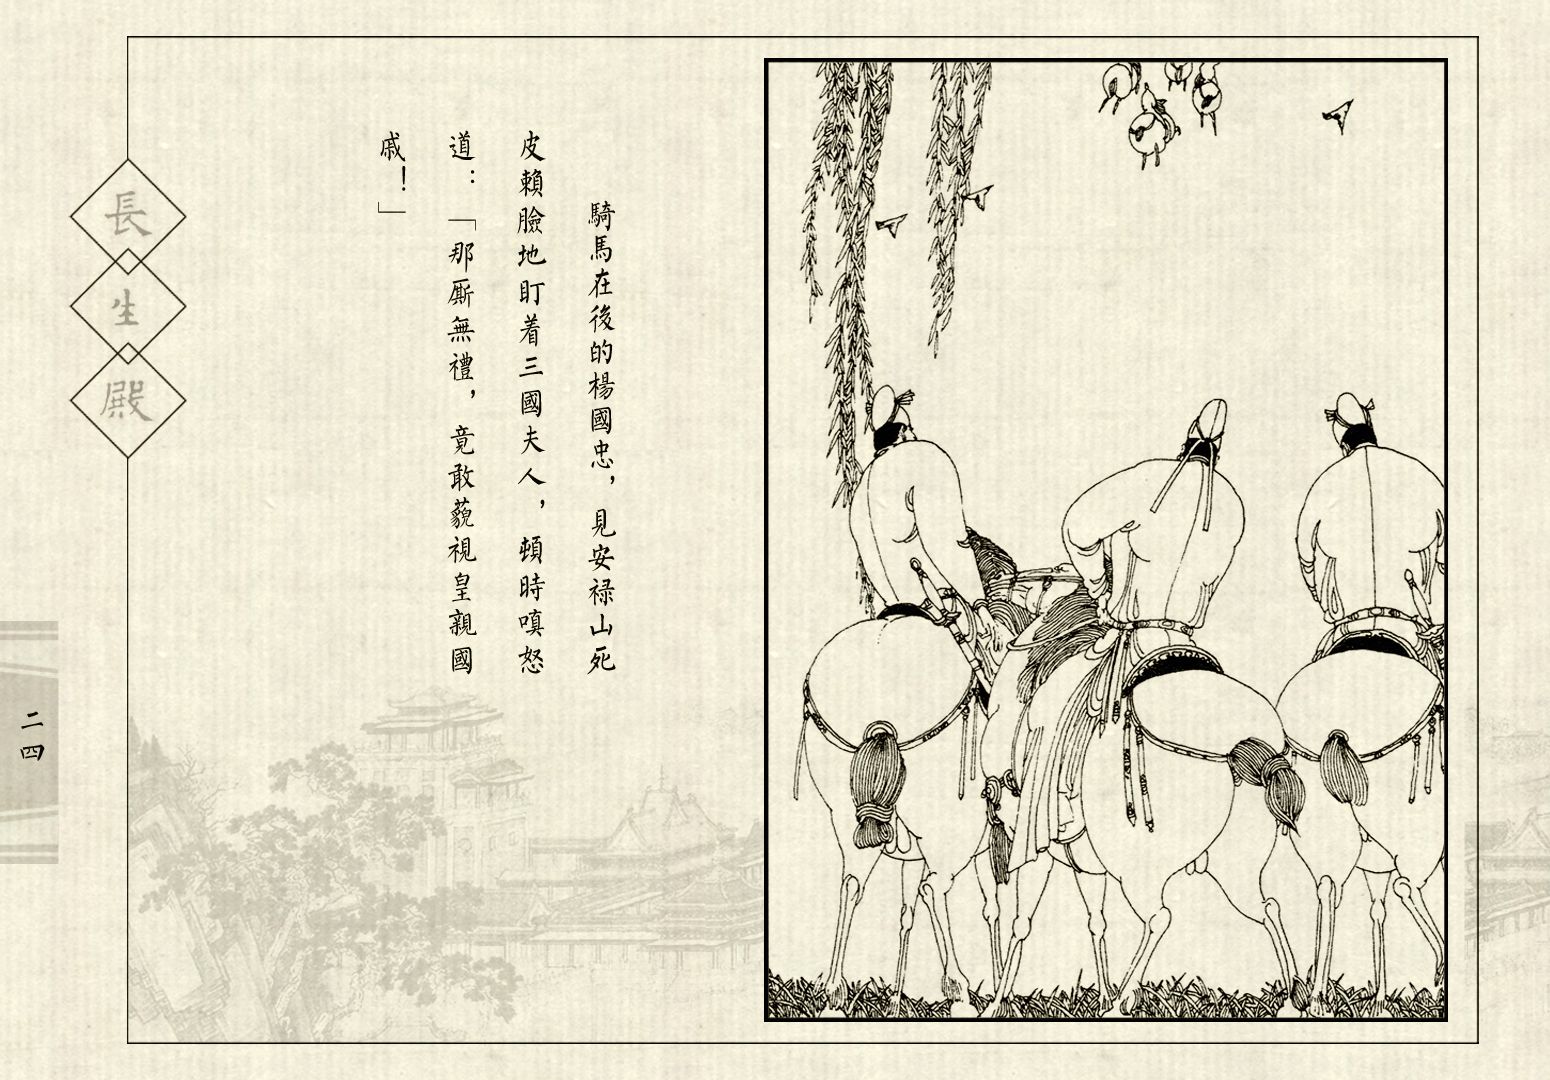 騎馬在後的楊國忠，見安禄山死
皮賴臉地盯着三國夫人，頓時嗔怒
道：「那厮無禮，竟敢藐視皇親國
戚！」
長生殿
二四